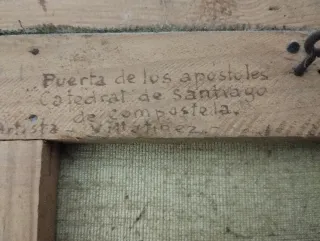 Puerta de los apostoles
Catedral de Santiago
de compostela.
Artista